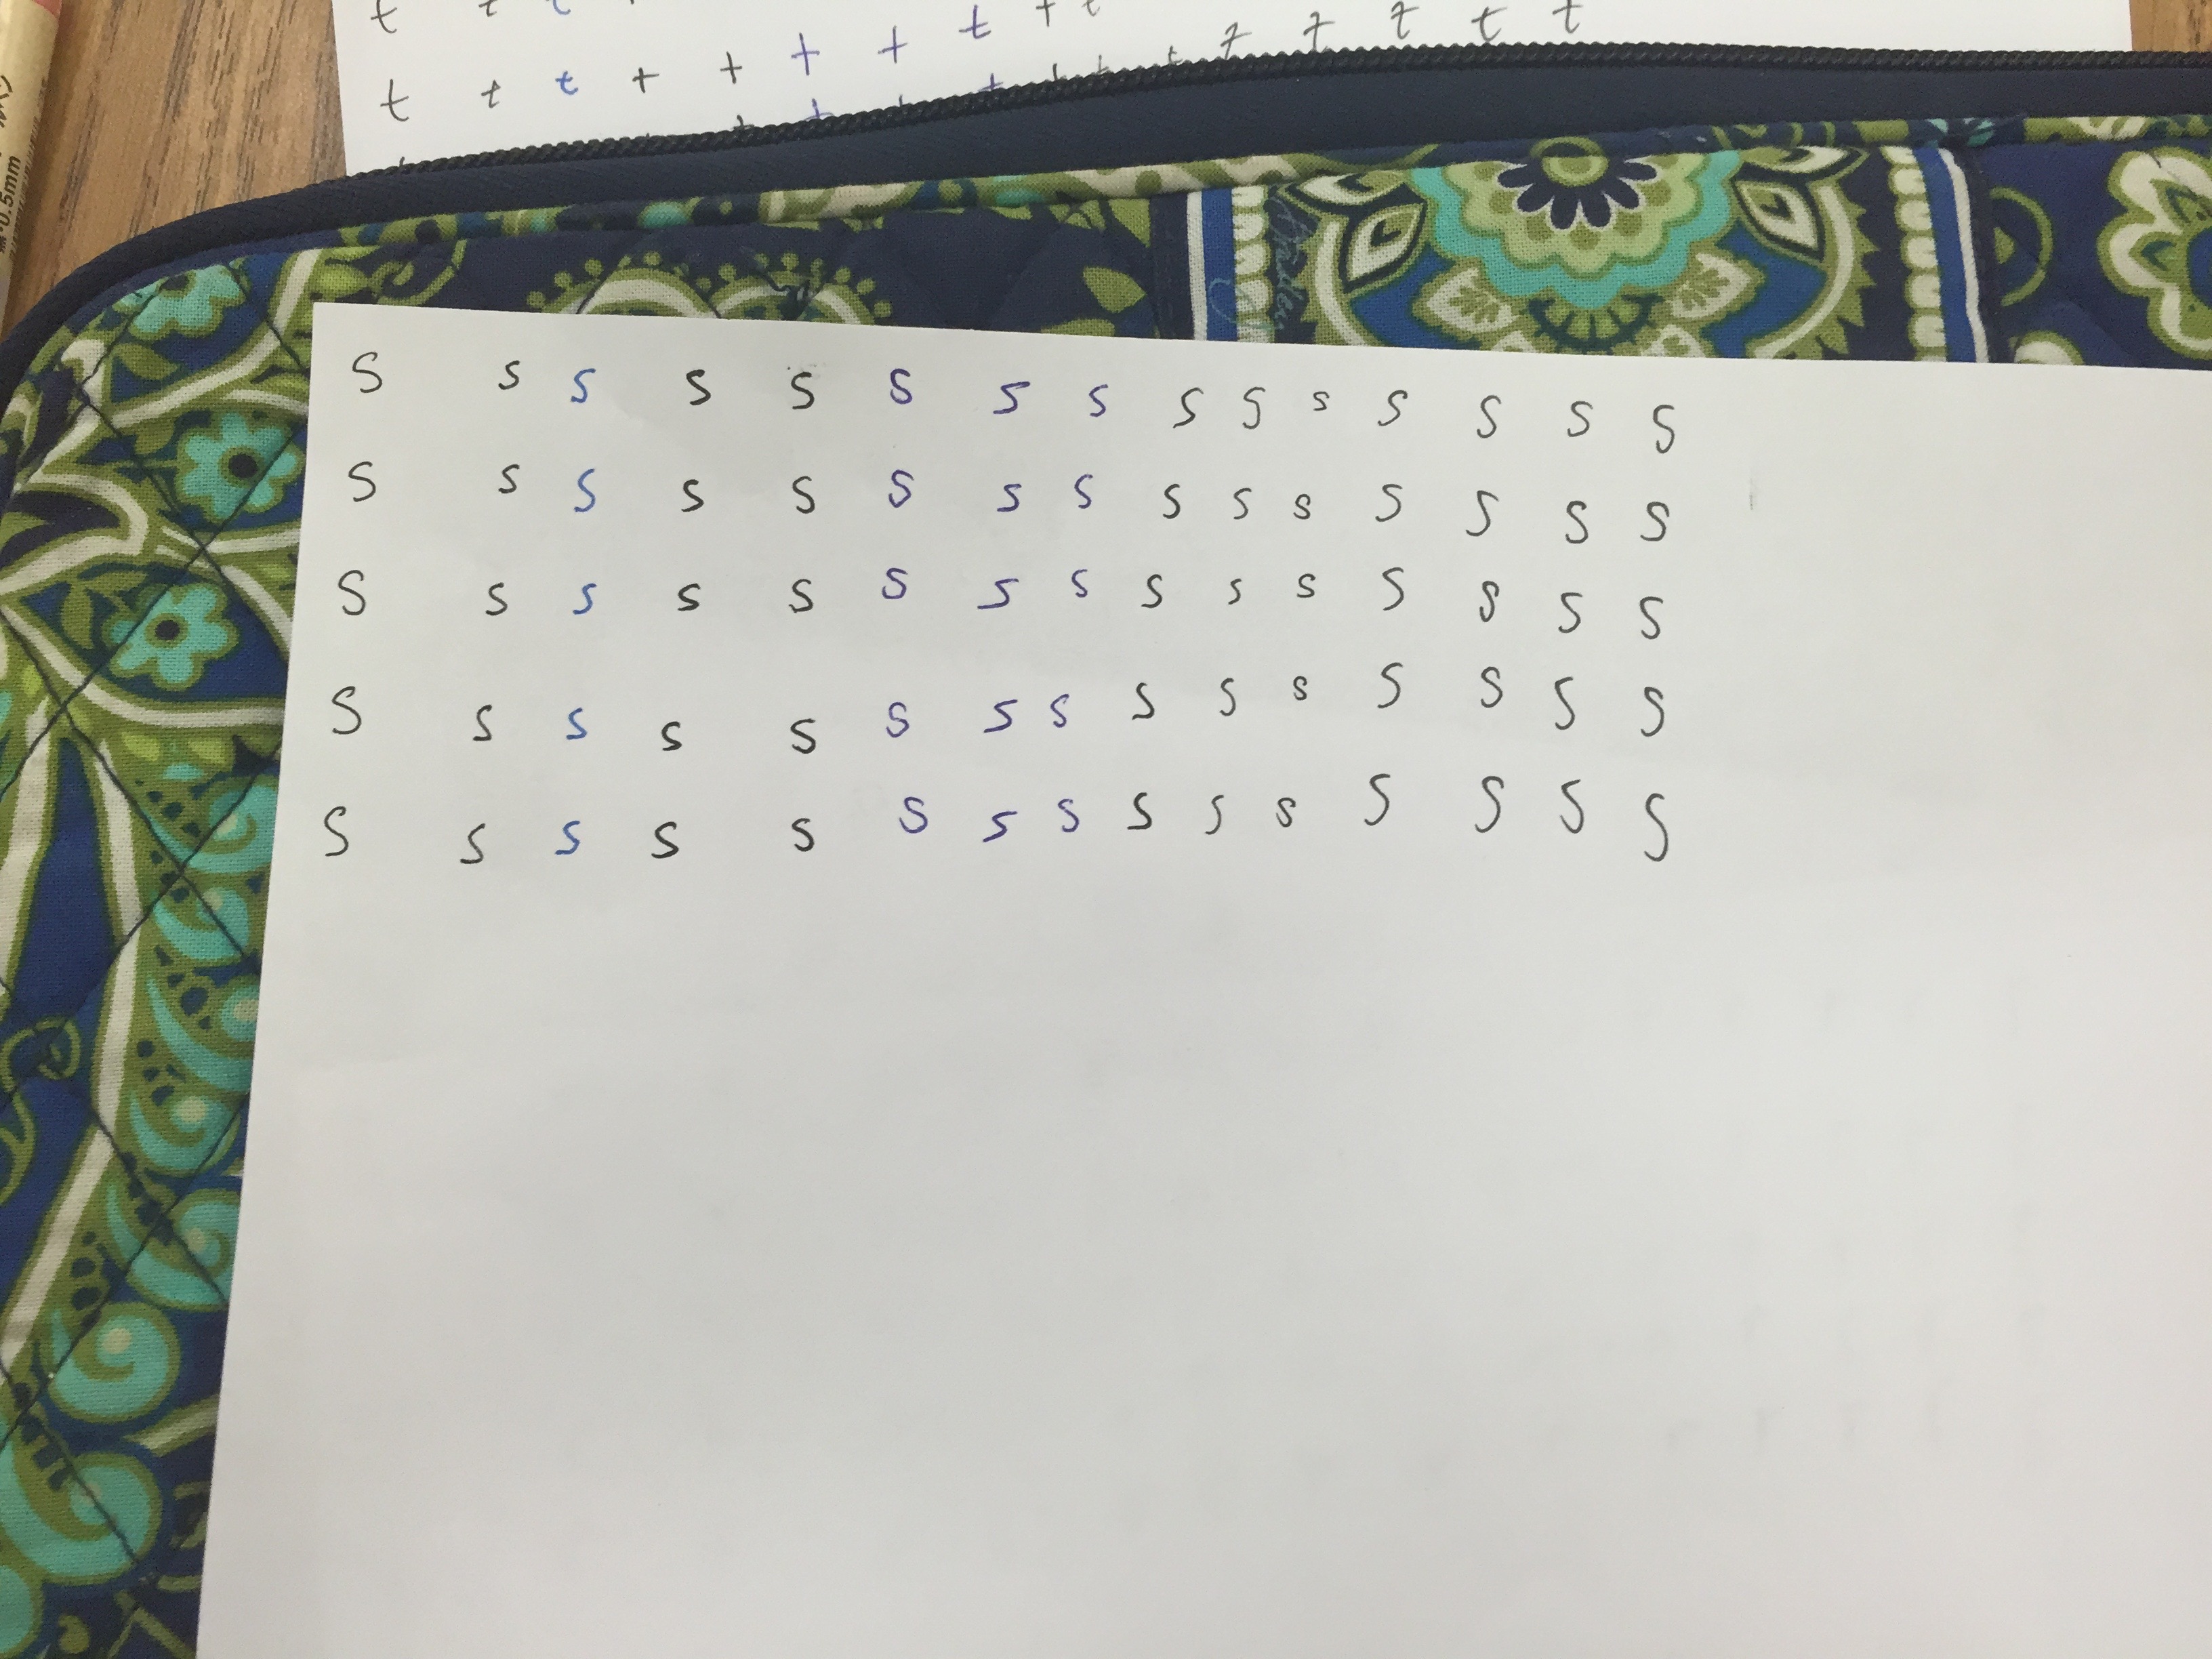 t t t t t t t t t t t t t t
t t t t t t t t t t t t t t
0.5mm
Bradley
s s s s s s s s s s s s s s s
s s s s s s s s s s s s s s s
s s s s s s s s s s s s s s s
s s s s s s s s s s s s s s s
s s s s s s s s s s s s s s s